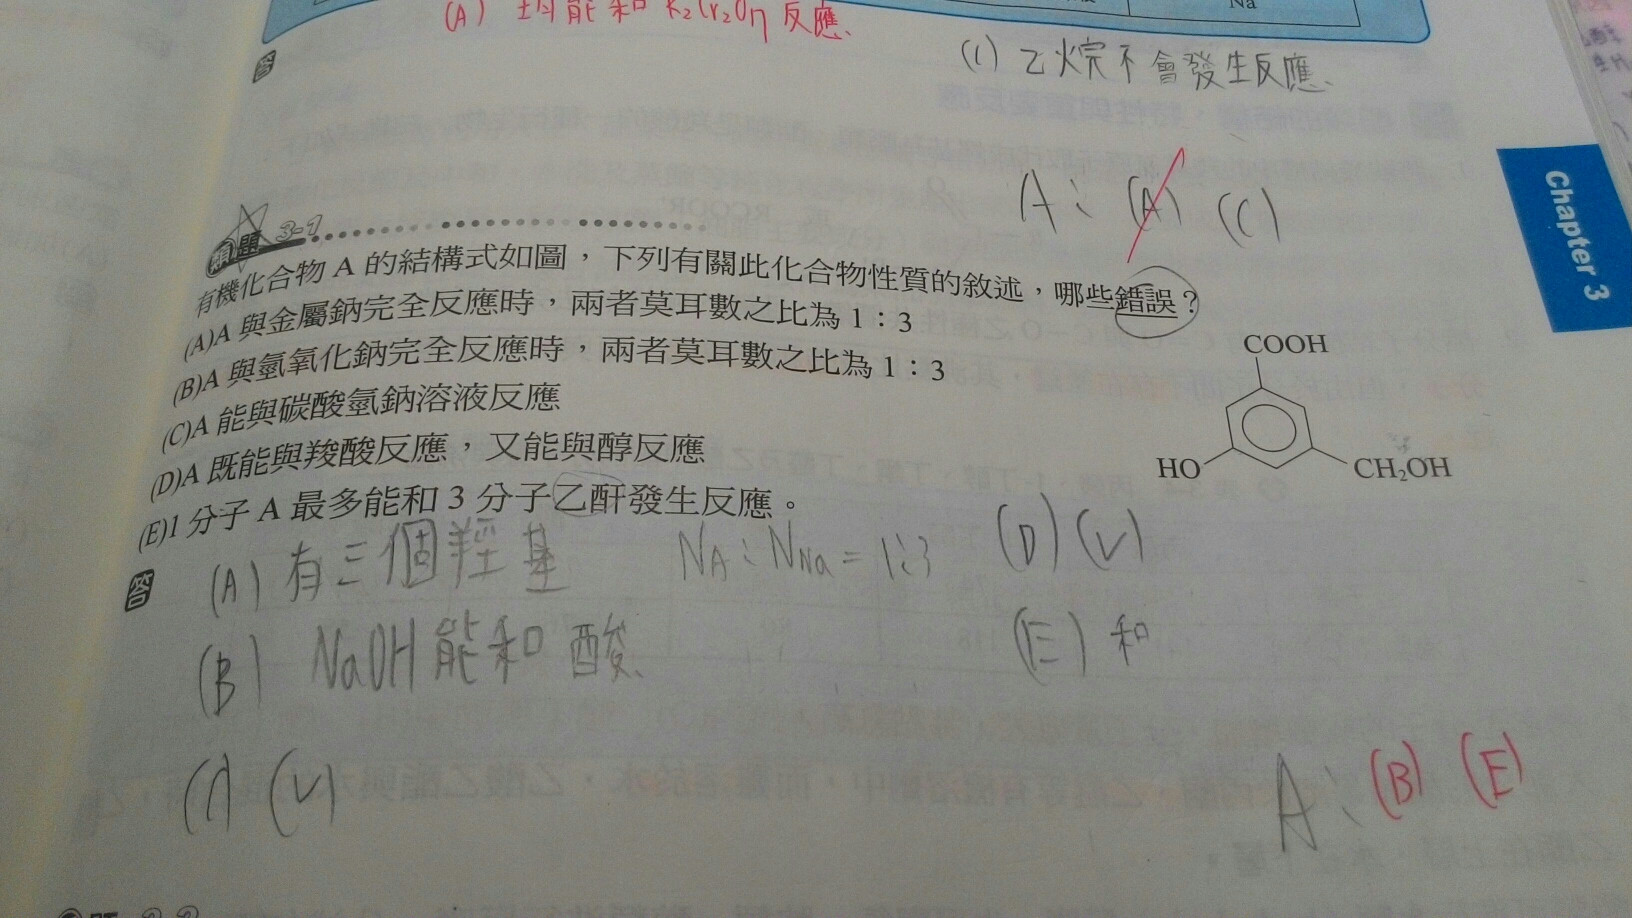 Na
(A) 均能和 K₂Cr₂O₇ 反應、
答
(C) 乙烷不會發生反應、
A: (A) (C)
Chapter 3
類題 3-1
有機化合物 A 的結構式如圖，下列有關此化合物性質的敘述，哪些錯誤？
(A)A 與金屬鈉完全反應時，兩者莫耳數之比為 1：3
(B)A 與氫氧化鈉完全反應時，兩者莫耳數之比為 1：3
(C)A 能與碳酸氫鈉溶液反應
(D)A 既能與羧酸反應，又能與醇反應
(E)1 分子 A 最多能和 3 分子乙酐發生反應。
COOH
HO
CH₂OH
答
(A) 有三個羥基 NA:NNa=1:3
(B) NaOH 能和 酸、
(C) (V)
(D) (V)
(E) 和
A: (B) (E)